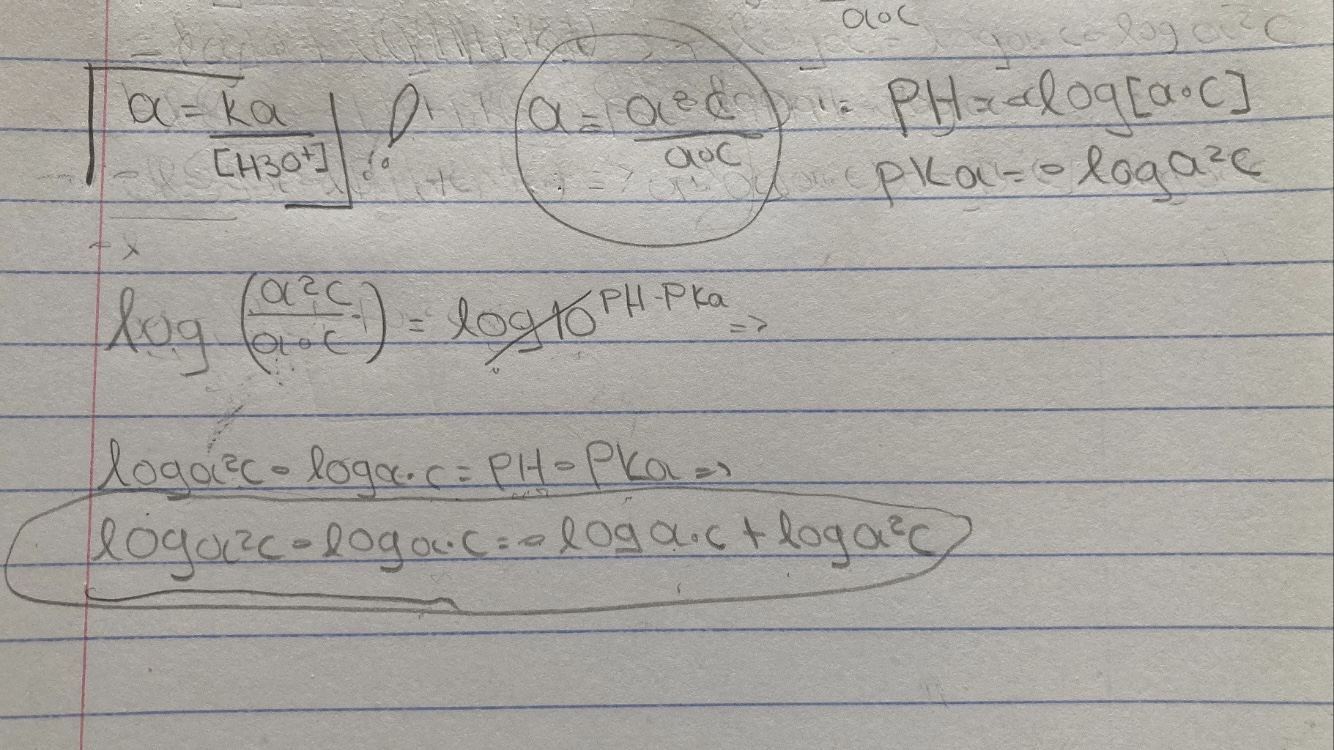 a·c
a = ka / [H3O+] a = a²c / a·c PH = -log[a·c]
pKa = -log a²c
log (a²c / a·c) = log 10^PH-PKa =>
log a²c - log a·c = PH - PKa =>
log a²c - log a·c = -log a·c + log a²c